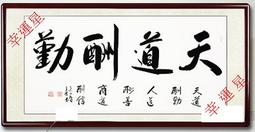 天道酬勤
天道
酬勤
人道
酬善
商道
酬信
幸運星
幸運星